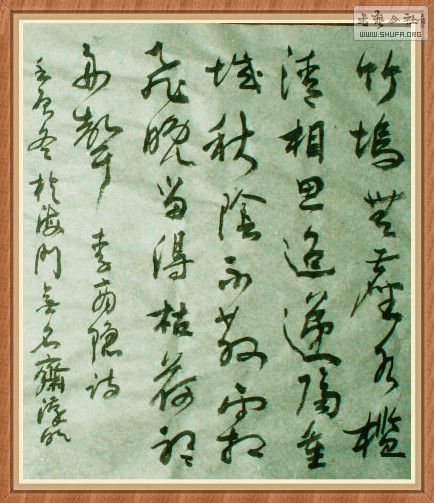 書藝公社
WWW.SHUFA.ORG
竹塢無塵水檻
清相思迢遞隔重
城秋陰不散霜
飛晚留得枯荷聽
雨聲 李商隱詩
冬於海門無名齋